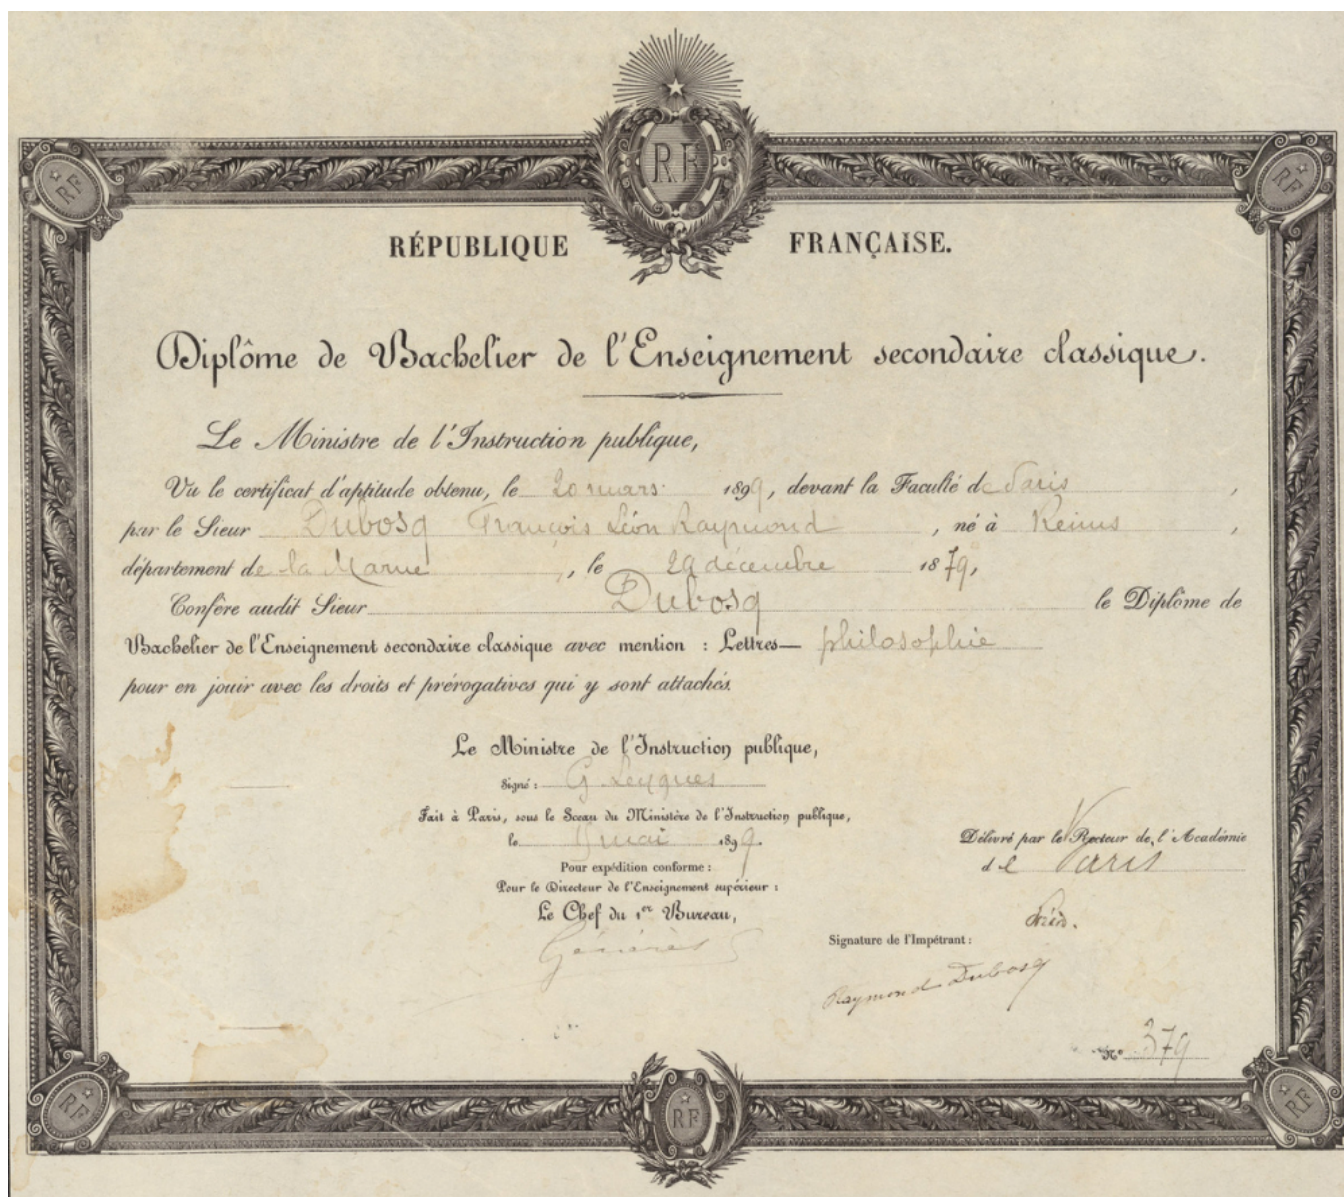 RF
RF
RF
RÉPUBLIQUE FRANÇAISE.
Diplôme de Bachelier de l'Enseignement secondaire classique.
Le Ministre de l'Instruction publique,
Vu le certificat d'aptitude obtenu, le 20 mars 1899, devant la Faculté de Paris,
par le Sieur Dubosq François Léon Raymond, né à Reims,
département de la Marne, le 29 décembre 1879,
Confère audit Sieur Dubosq le Diplôme de
Bachelier de l'Enseignement secondaire classique avec mention : Lettres— philosophie
pour en jouir avec les droits et prérogatives qui y sont attachés.
Le Ministre de l'Instruction publique,
Signé : G Leygues
Fait à Paris, sous le Sceau du Ministère de l'Instruction publique,
le mai 1899.
Pour expédition conforme :
Pour le Directeur de l'Enseignement supérieur :
Le Chef du 1er Bureau,
Délivré par le Recteur de l'Académie
de Paris
Signature de l'Impétrant :
Raymond Dubosq
N° 379
RF
RF
RF